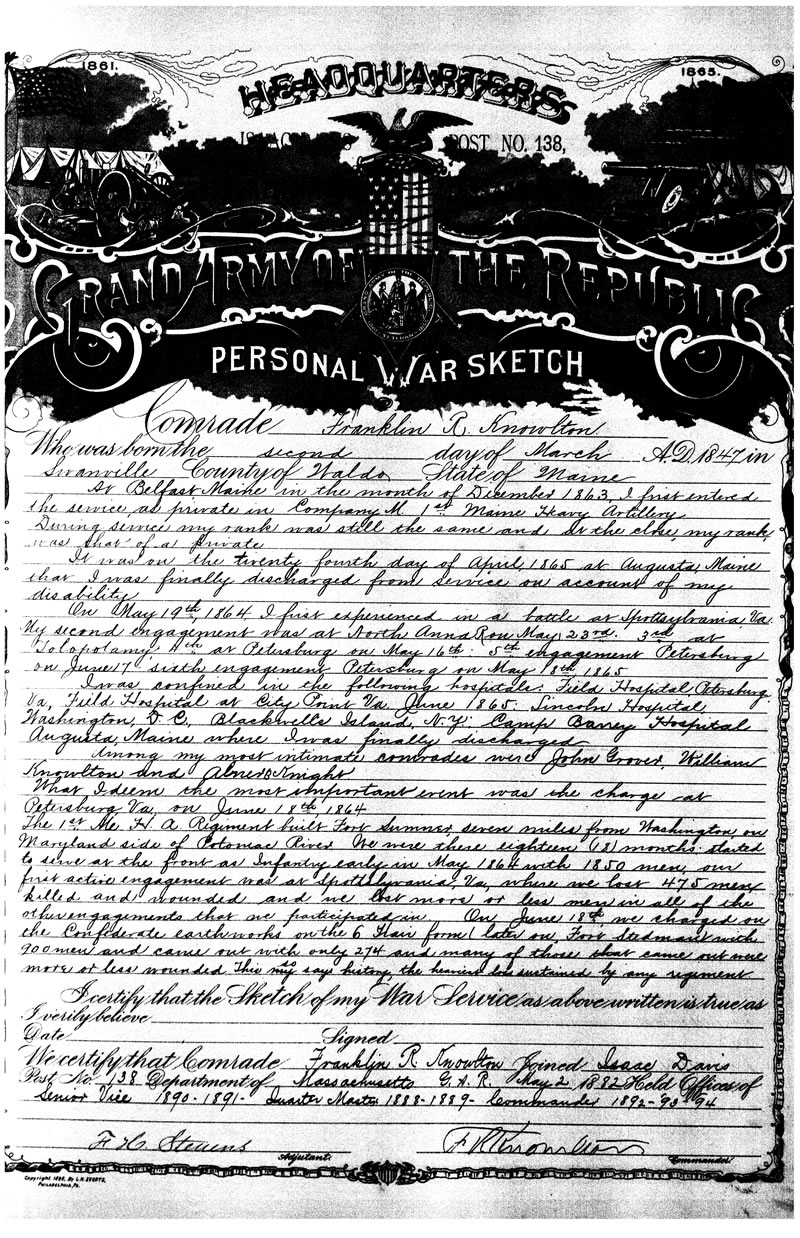 1861.
1865.
HEADQUARTERS
POST NO. 138,
GRAND ARMY OF THE REPUBLIC
PERSONAL WAR SKETCH
Comrade Franklin R. Knowlton
Who was born the second day of March A.D. 1847 in
Swanville County of Waldo State of Maine
At Belfast Maine in the month of December 1863, I first entered
the service, as private in Company M 1st Maine Heavy Artillery
During service my rank was still the same and at the close, my rank,
was that of a private
It was on the twenty fourth day of April, 1865 at Augusta, Maine
that I was finally discharged from service on account of my
disability
On May 19th, 1864, I first experienced in a battle at Spottsylvania, Va.
My second engagement was at North Anna on May 23rd. 3rd at
Tolopotamy 4th at Petersburg on May 16th. 5th engagement Petersburg
on June 17 sixth engagement Petersburg on May 18th 1865
I was confined in the following hospitals: Field Hospital, Petersburg
Va, Field Hospital at City Point Va. June 1865. Lincoln Hospital,
Washington, D.C, Blackwells Island, N.Y. Camp Barrey Hospital
Augusta, Maine where I was finally discharged
Among my most intimate comrades were John Grover, William
Knowlton and Abner Knight
What I deem the most important event was the charge at
Petersburg Va, on June 18th 1864
The 1st Me, H. A. Regiment built Fort Sumner, seven miles from Washington, on
Maryland side of Potomac River. We were there eighteen (18) months. started
to serve at the front as Infantry early in May 1864 with 1850 men, our
first active engagement was at Spottslyvania, Va, where we lost 475 men
killed and wounded and we lost more or less men in all of the
other engagements that we participated in. On June 18th we charged on
the Confederate earthworks on the Hair farm (later on, Fort Stedman) with
900 men and came out with only 274 and many of those that came out were
more or less wounded. This says history, the heaviest loss sustained by any regiment
I certify that the Sketch of my War Service as above written is true as
I verily believe
Date Signed
We certify that Comrade Franklin R Knowlton Joined Isaac Davis
Post No. 138 Department of Massachusetts G.A.R. May 2 1882 Held Offices of
Senior Vice 1890-1891- Quarter Master 1888-1889- Commander 1892-93-94
F. C. Stevens
F R Knowlton
Adjutant.
Commander.
Copyright 1890, By L.H. EVERTS,
PHILADELPHIA, PA.